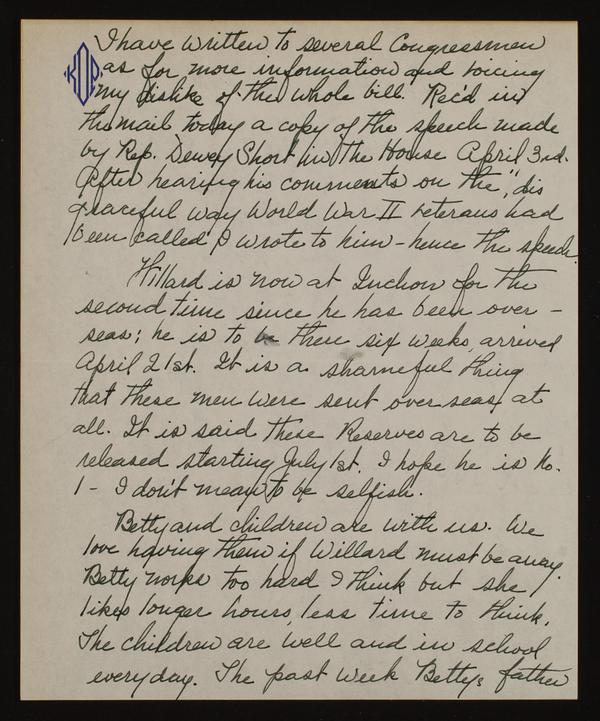 KOP
I have written to several Congressmen
as for more information and voicing
my dislike of the whole bill. Rec'd in
the mail today a copy of the speech made
by Rep. Dewey Short in the House April 3rd.
After hearing his comments on the "dis
graceful way World War II veterans had
been called" I wrote to him - hence the speech.
Hillard is now at Inchon for the
second time since he has been over -
seas; he is to be there six weeks, arrived
April 21st. It is a shameful thing
that these men were sent overseas at
all. It is said these Reserves are to be
released starting July 1st. I hope he is No.
1 - I don't mean to be selfish.
Betty and children are with us. We
love having them if Willard must be away.
Betty works too hard I think but she
likes longer hours, less time to think.
The children are well and in school
everyday. The past week Bettys father